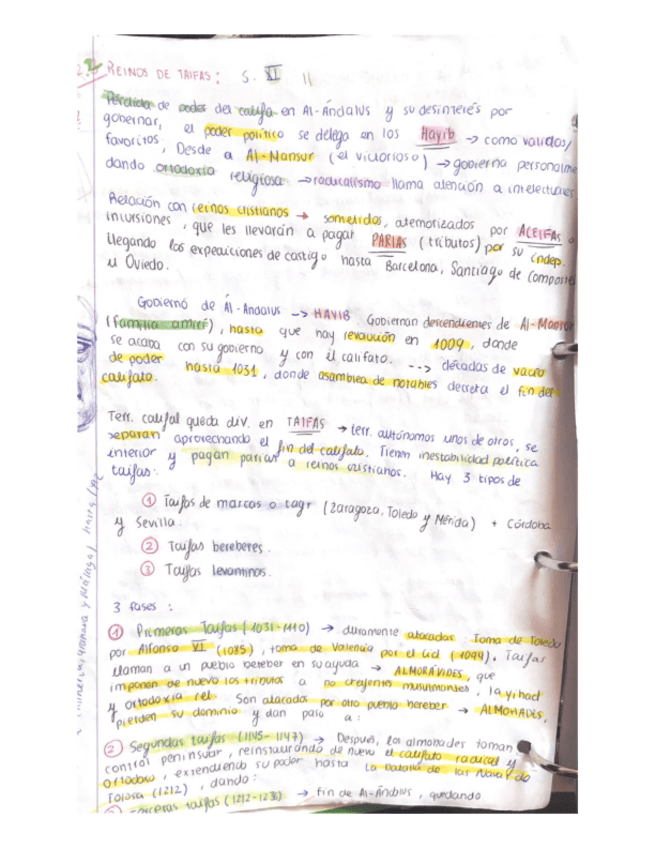 REINOS DE TAIFAS: S. XI
Pérdida de poder del califa en Al-Ándalus y su desinterés por
gobernar, el poder político se delega en los Hayib → como validos/
favoritos. Desde a Al-Mansur (el victorioso) → gobierna personalme
dando ortodoxia religiosa → radicalismo llama atención a intelectuales
Relación con reinos cristianos → sometidos, atemorizados por ACEIFAS o
incursiones, que les llevarán a pagar PARIAS (tributos) por su indep.
llegando los expediciones de castigo hasta Barcelona, Santiago de Composte
u Oviedo.
Gobierno de Al-Andalus --> HAYIB. Gobiernan descendientes de Al-Mansur
(familia amirí), hasta que hay revolución en 1009, donde
se acaba con su gobierno y con el califato. --> décadas de vacío
de poder hasta 1031, donde asamblea de notables decreta el fin del
califato.
Terr. califal queda div. en TAIFAS → terr. autónomos unos de otros, se
separan aprovechando el fin del califato. Tienen inestabilidad política
interior y pagan parias a reinos cristianos. Hay 3 tipos de
taifas:
① Taifas de marcas o tagr (Zaragoza, Toledo y Mérida) + Córdoba
y Sevilla.
② Taifas bereberes.
③ Taifas levantinos.
3 fases:
① Primeras Taifas (1031-1110) → duramente atacadas: Toma de Toledo
por Alfonso VI (1085), toma de Valencia por el Cid (1094). Taifas
llaman a un pueblo bereber en su ayuda → ALMORÁVIDES, que
imponen de nuevo los tributos a no creyentes musulmanes, la yihad
y ortodoxia rel. Son atacados por otro pueblo bereber → ALMOHADES,
pierden su dominio y dan paso a:
② Segundas taifas (1145-1147) → Después, los almohades toman
control peninsular, reinstaurando de nuevo el califato radical y
ortodoxo, extendiendo su poder hasta la Batalla de las Navas de
Tolosa (1212), dando:
terceras taifas (1212-1236) → fin de Al-Ándalus, quedando